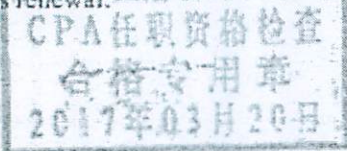 s renewal.
CPA任职资格检查
合格专用章
2017年03月20日